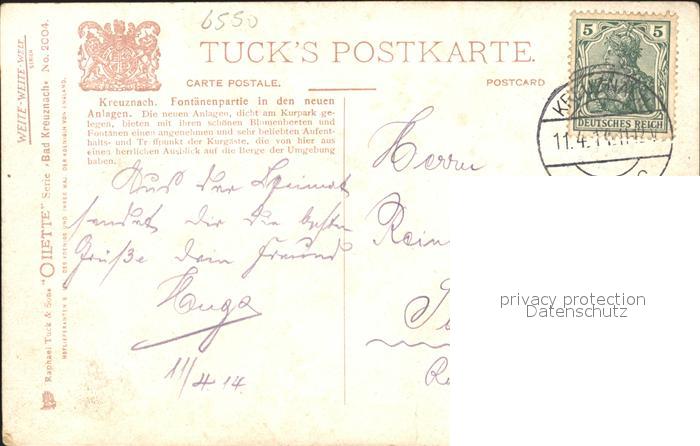 6550
TUCK'S POSTKARTE.
CARTE POSTALE.
POSTCARD
Kreuznach. Fontänenpartie in den neuen
Anlagen. Die neuen Anlagen, dicht am Kurpark ge-
legen, bieten mit ihren schönen Blumenbeeten und
Fontänen einen angenehmen und sehr beliebten Aufent-
halts- und Treffpunkt der Kurgäste, die von hier aus
einen herrlichen Ausblick auf die Berge der Umgebung
haben.
Aus der Heimat
sendet dir die besten
Grüße dein Freund
Hugo
11/4.14
Herrn
Rein
5 5
DEUTSCHES REICH
11.4.14.11-12
privacy protection
Datenschutz
WEITE-WEITE-WELT
SERIEN
Raphael Tuck & Sons "OILETTE" Serie »Bad Kreuznach« No. 2004.
HOFLIEFERANTEN S. M. DES KÖNIGS UND IHRER MAJ. DER KÖNIGIN VON ENGLAND.